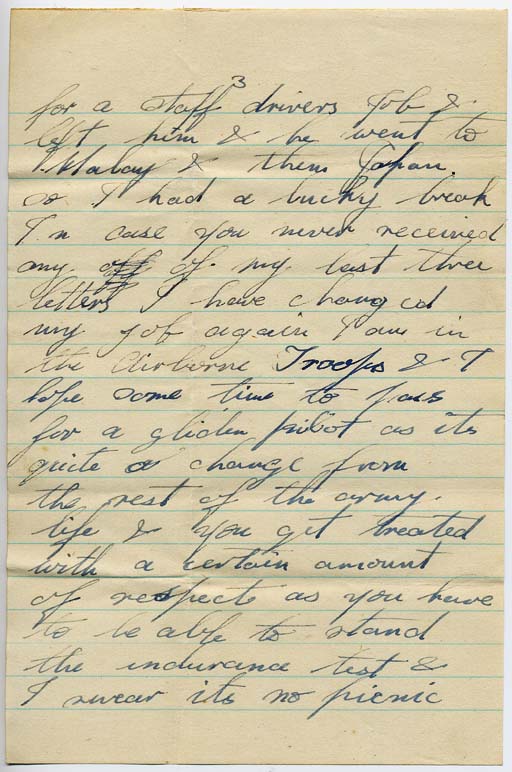 3
for a staff drivers job &
left him & he went to
Malay & them Japan.
so I had a lucky break
In case you never received
any of my last three
letters I have changed
my job again I am in
the Airborne Troops & I
hope some time to pass
for a glider pilot as its
quite a change from
the rest of the army.
life & you get treated
with a certain amount
of respects as you have
to be able to stand
the indurance test &
I swear its no picnic